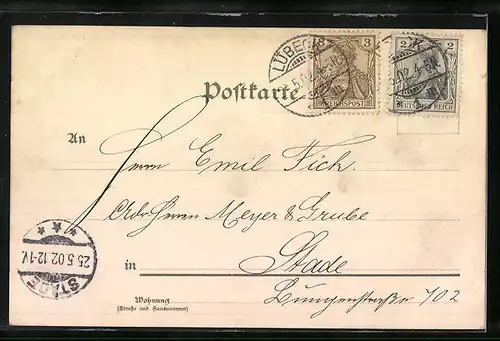 LÜBECK
3
REICHSPOST
2
2
DEUTSCHES REICH
Postkarte
An
Herrn Emil Fick.
Adr. Herren Meyer & Grube
in Stade
Wohnung
(Straße und Hausnummer)
STADE
25.5.02.12-1V.